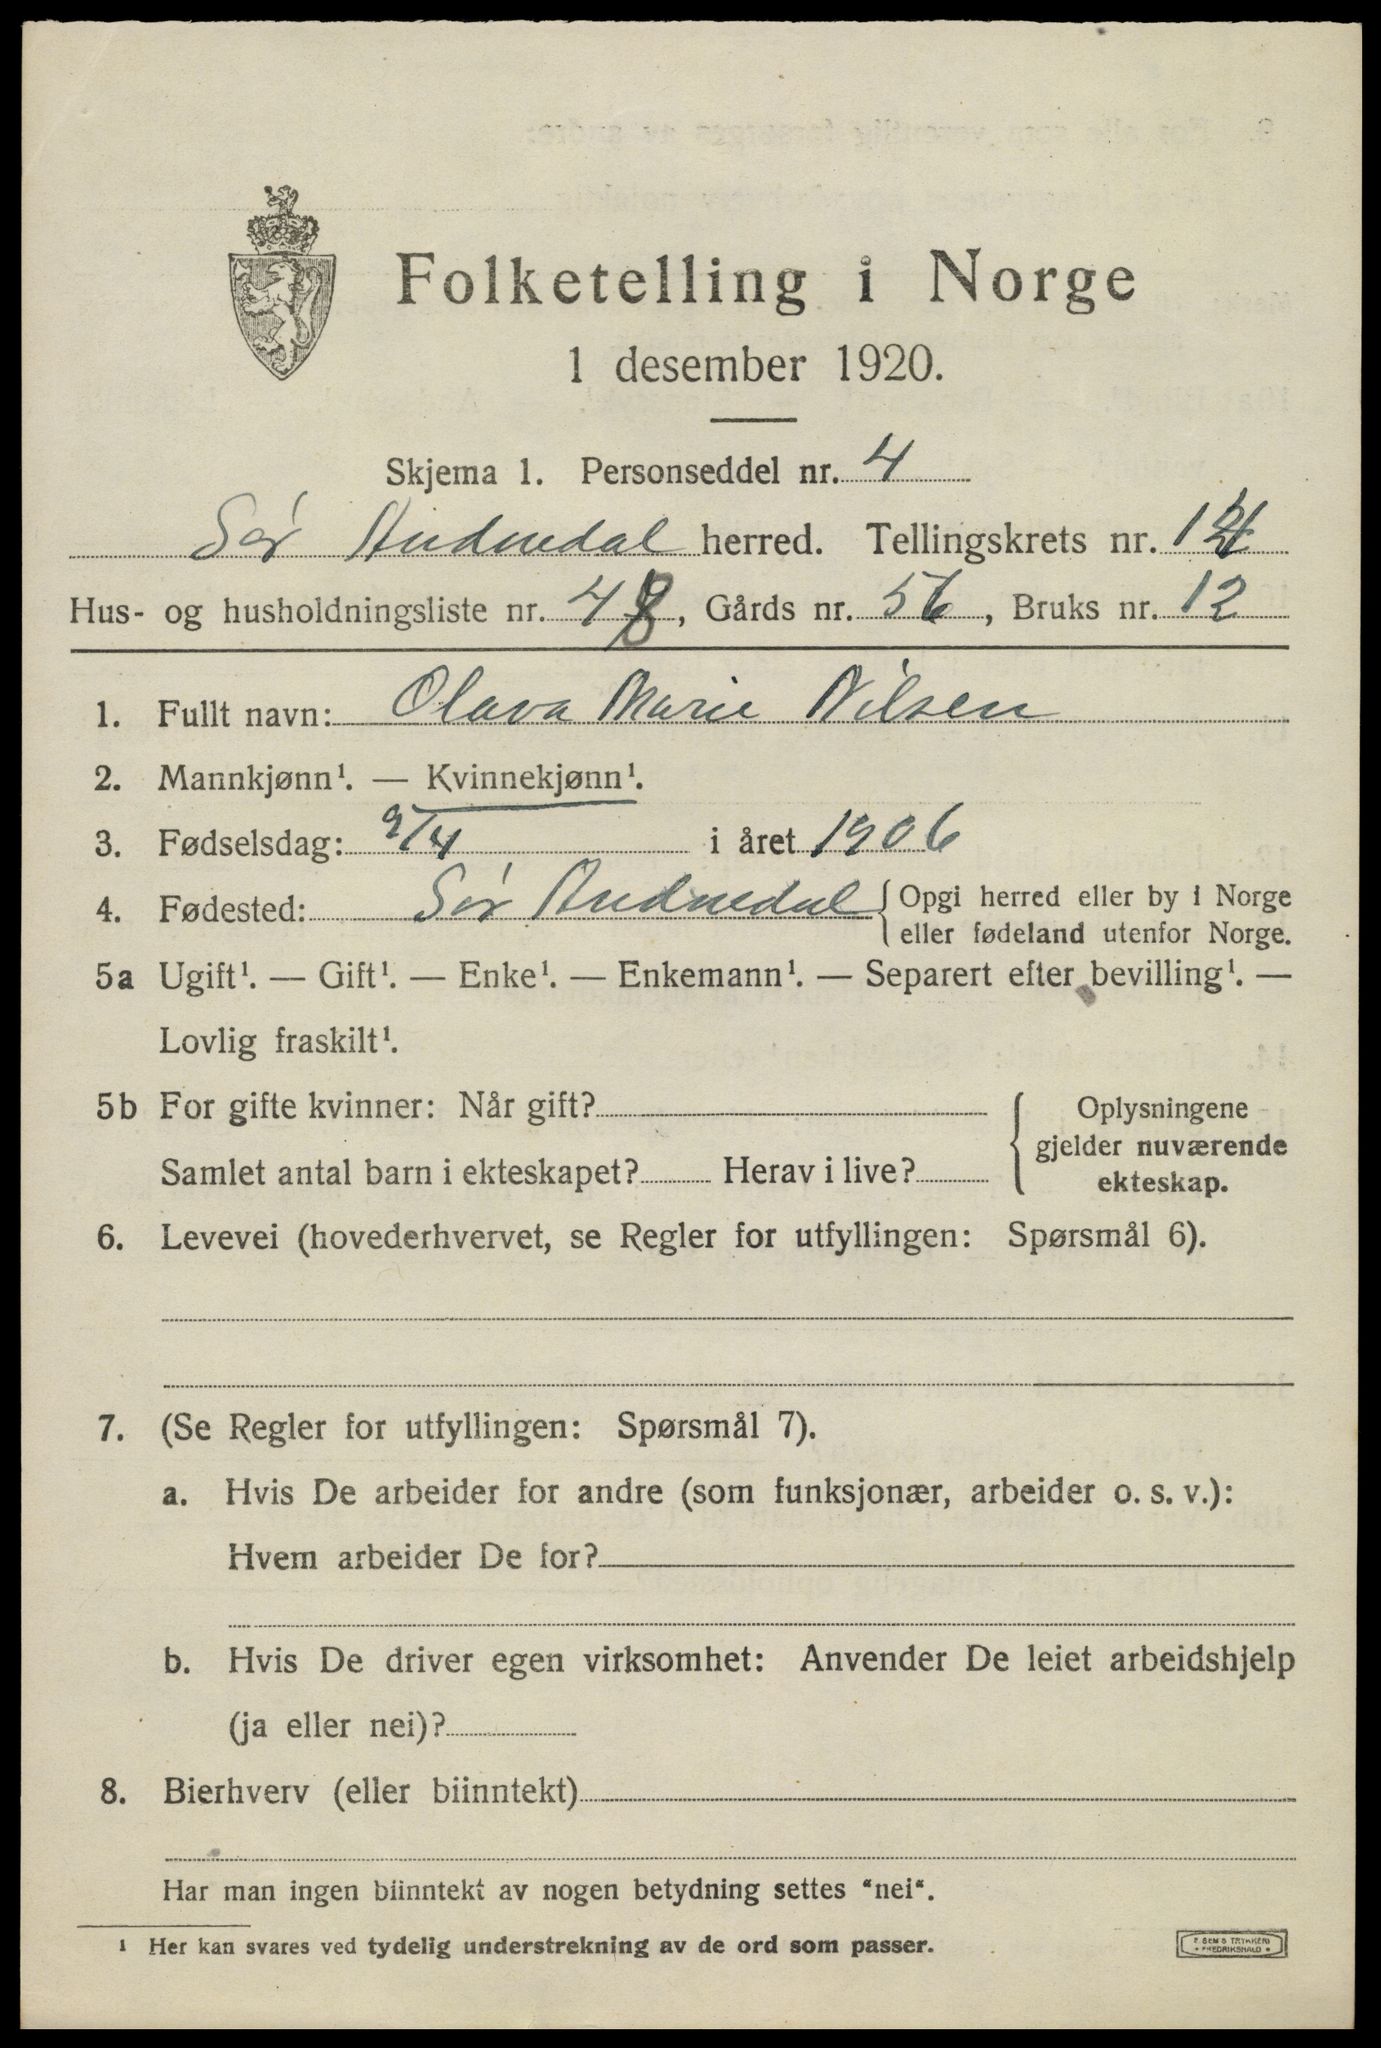 Folketelling i Norge
1 desember 1920.
Skjema 1. Personseddel nr. 4
Sør Audnedal herred. Tellingskrets nr. 14
Hus- og husholdningsliste nr. 48, Gårds nr. 56, Bruks nr. 12
1. Fullt navn: Olava Marie Nilsen
2. Mannkjønn¹. — Kvinnekjønn¹.
3. Fødselsdag: 9/4 i året 1906
4. Fødested: Sør Audnedal { Opgi herred eller by i Norge
eller fødeland utenfor Norge.
5a Ugift¹. — Gift¹. — Enke¹. — Enkemann¹. — Separert efter bevilling¹. —
Lovlig fraskilt¹.
5b For gifte kvinner: Når gift?
Samlet antal barn i ekteskapet? Herav i live?
{ Oplysningene
gjelder nuværende
ekteskap.
6. Levevei (hovederhvervet, se Regler for utfyllingen: Spørsmål 6).
7. (Se Regler for utfyllingen: Spørsmål 7).
a. Hvis De arbeider for andre (som funksjonær, arbeider o. s. v.):
Hvem arbeider De for?
b. Hvis De driver egen virksomhet: Anvender De leiet arbeidshjelp
(ja eller nei)?
8. Bierhverv (eller biinntekt)
Har man ingen biinntekt av nogen betydning settes "nei".
¹ Her kan svares ved tydelig understrekning av de ord som passer.
E. SEM'S TRYKKERI
FREDRIKSHALD